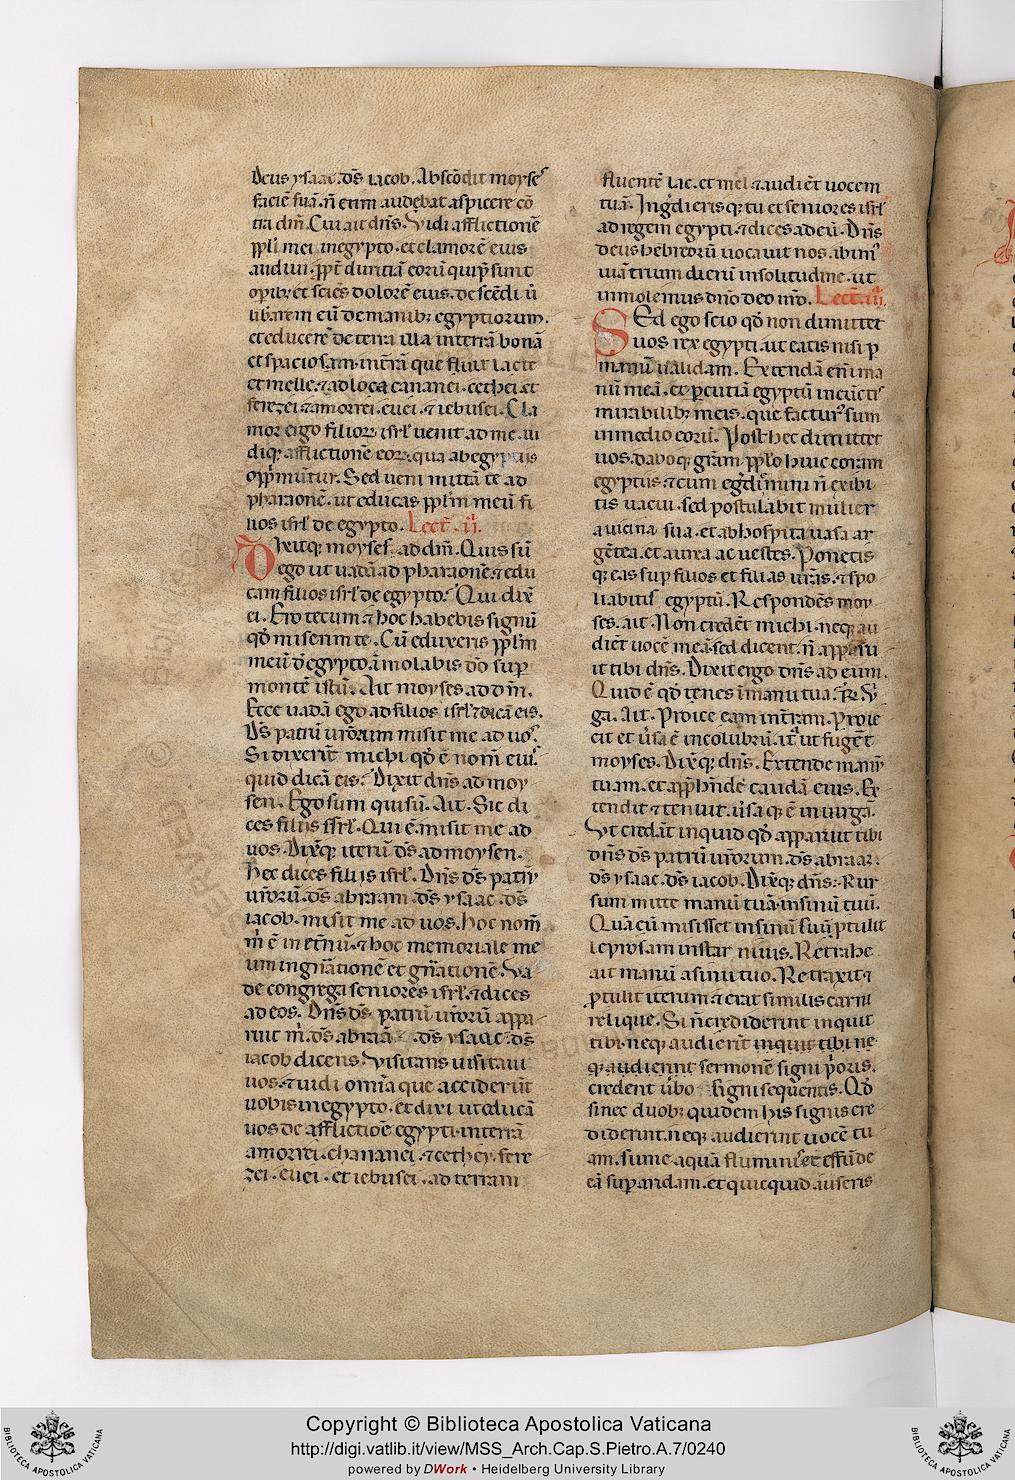 Deus ysaac. ds̄ iacob. Abscōdit moyses
faciē suā. n̄ enim audebat aspicere cō
tra dm̄. Cui ait dn̄s. Vidi afflictionē
pp̄li mei inegypto. et clamorē eius
audiui. pp̄t duritiā eorū qui p̄sunt
opib; et sciēs dolorē eius. descēdi ut
libarem eū demanib; egyptiorum.
et educerē de terra illa interrā bonā
et spaciosam. int̄rā que fluit lacte
et melle. ⁊ adloca cananei. cethei. et
ferezei ⁊ amorrei. euei. ⁊ iebusei. Cla
mor ergo filioꝝ isrl̄ uenit ad me. ui
diq; afflictionē eoꝝ. qua abegyptiis
opp̄muntur. Sed ueni mittā te ad
pharaonē. ut educas pp̄lm meū fi
lios isrl̄ de egypto. Lect̄. ii.
Dixitq; moyses. ad dm̄. Quis sū
ego ut uadā ad pharaonē ⁊ edu
cam filios isrl̄ de egypto? Qui dix̄
ei. Ero tecum ⁊ hoc habebis signū
qd̄ miserim te. Cū eduxeris pp̄lm
meū d̄egypto. īmolabis dō sup
montē istū. Ait moyses ad dm̄.
Ecce uadā ego ad filios isrl̄ ⁊ dicā eis.
Ds̄ patrū ur̄orum misit me ad uos.
Si dixerīt michi qd̄ ē nom̄ eius.
quid dicā eis? Dixit dn̄s ad moy
sen. Ego sum qui sū. Ait. Sic di
ces filiis isrl̄. Qui ē. misit me ad
uos. Dix̄q; iterū ds̄ ad moysen.
Hec dices filiis isrl̄. Dn̄s ds̄ patrū
ur̄orū. ds̄ abraam. ds̄ ysaac. ds̄
iacob. misit me ad uos. hoc nom̄
m̄ ē in et̄nū. ⁊ hoc memoriale me
um in gn̄ationē et gn̄ationē. Va
de congrega seniores isrl̄. ⁊ dices
ad eos. Dn̄s ds̄ patrū ur̄orū appa
ruit m̄. ds̄ abraā. ds̄ ysaac. ds̄
iacob dicens. Visitans uisitaui
uos. ⁊ uidi omīa que acciderūt
uobis inegypto. et dixi ut educā
uos de afflictiōe egypti. interrā
amorrei. chananei. ⁊ cethei. fere
zei. euei. et iebusei. ad terram
fluentē lac. et mel ⁊ audiēt uocem
tuā. Ingr̄dierisq; tu et seniores isrl̄
ad regem egypti. ⁊ dices ad eū. Dn̄s
deus hebreorū uocauit nos. abim
uiā trium dierū insolitudine. ut
inmolemus dn̄o deo nr̄o. Lect̄. iii.
Sed ego scio qd̄ non dimittet
uos rex egypti. ut eatis nisi p
manū ualidam. Extendā en̄i ma
nū meā. et p̄cutiā egyptū incūctis
mirabilib; meis. que facturus sum
inmedio eorū. Post hec dimittet
uos. daboq; gr̄am pp̄lo huic coram
egyptiis ⁊ cum egr̄diemini n̄ exibi
tis uacui. sed postulabit mulier
auicina sua. et abhospita uasa ar
gētea. et aurea ac uestes. Ponetis
q; eas sup filios et filias ur̄as. ⁊ spo
liabitis egyptū. Respondēs moy
ses. ait. Non credēt michi. neq; au
diēt uocē meā. sed dicent. n̄ apparu
it tibi dn̄s. Dixit ergo dn̄s ad eum.
Quid ē qd̄ tenes ī manu tua? R̄. Vir
ga. Ait. Proice eam int̄ram. Proie
cit et ūsa ē incolubrū. ita ut fugēt
moyses. Dix̄q; dn̄s. Extende manū
tuam. et app̄hnde caudā eius. Ex
tendit ⁊ tenuit. ūsaq; ē inuirgā.
Vt credāt inquid qd̄ apparuit tibi
dn̄s ds̄ patrū ur̄orum. ds̄ abraam.
ds̄ ysaac. ds̄ iacob. Dix̄q; dn̄s. Rur
sum mitte manū tuā. insinū tuū.
Quā cū misisset insinū suū. p̄tulit
leprosam instar niuis. Retrahe
ait manū asinu tuo. Retraxit ⁊
p̄tulit iterum ⁊ erat similis carni
relique. Si n̄ crediderint inquit
tibi. neq; audierit inquit tibi ne
q; audierint sermonē signi p̄oris.
credent ūbo signi sequentis. Qd̄
sinec duob; quidem his signis cre
diderint. neq; audierint uocē tu
am. sume aquā fluminis et effūde
eā sup aridam. et quicquid auseris
Copyright © Biblioteca Apostolica Vaticana
http://digi.vatlib.it/view/MSS_Arch.Cap.S.Pietro.A.7/0240
powered by DWork • Heidelberg University Library
BIBLIOTECA APOSTOLICA VATICANA
BIBLIOTECA APOSTOLICA VATICANA